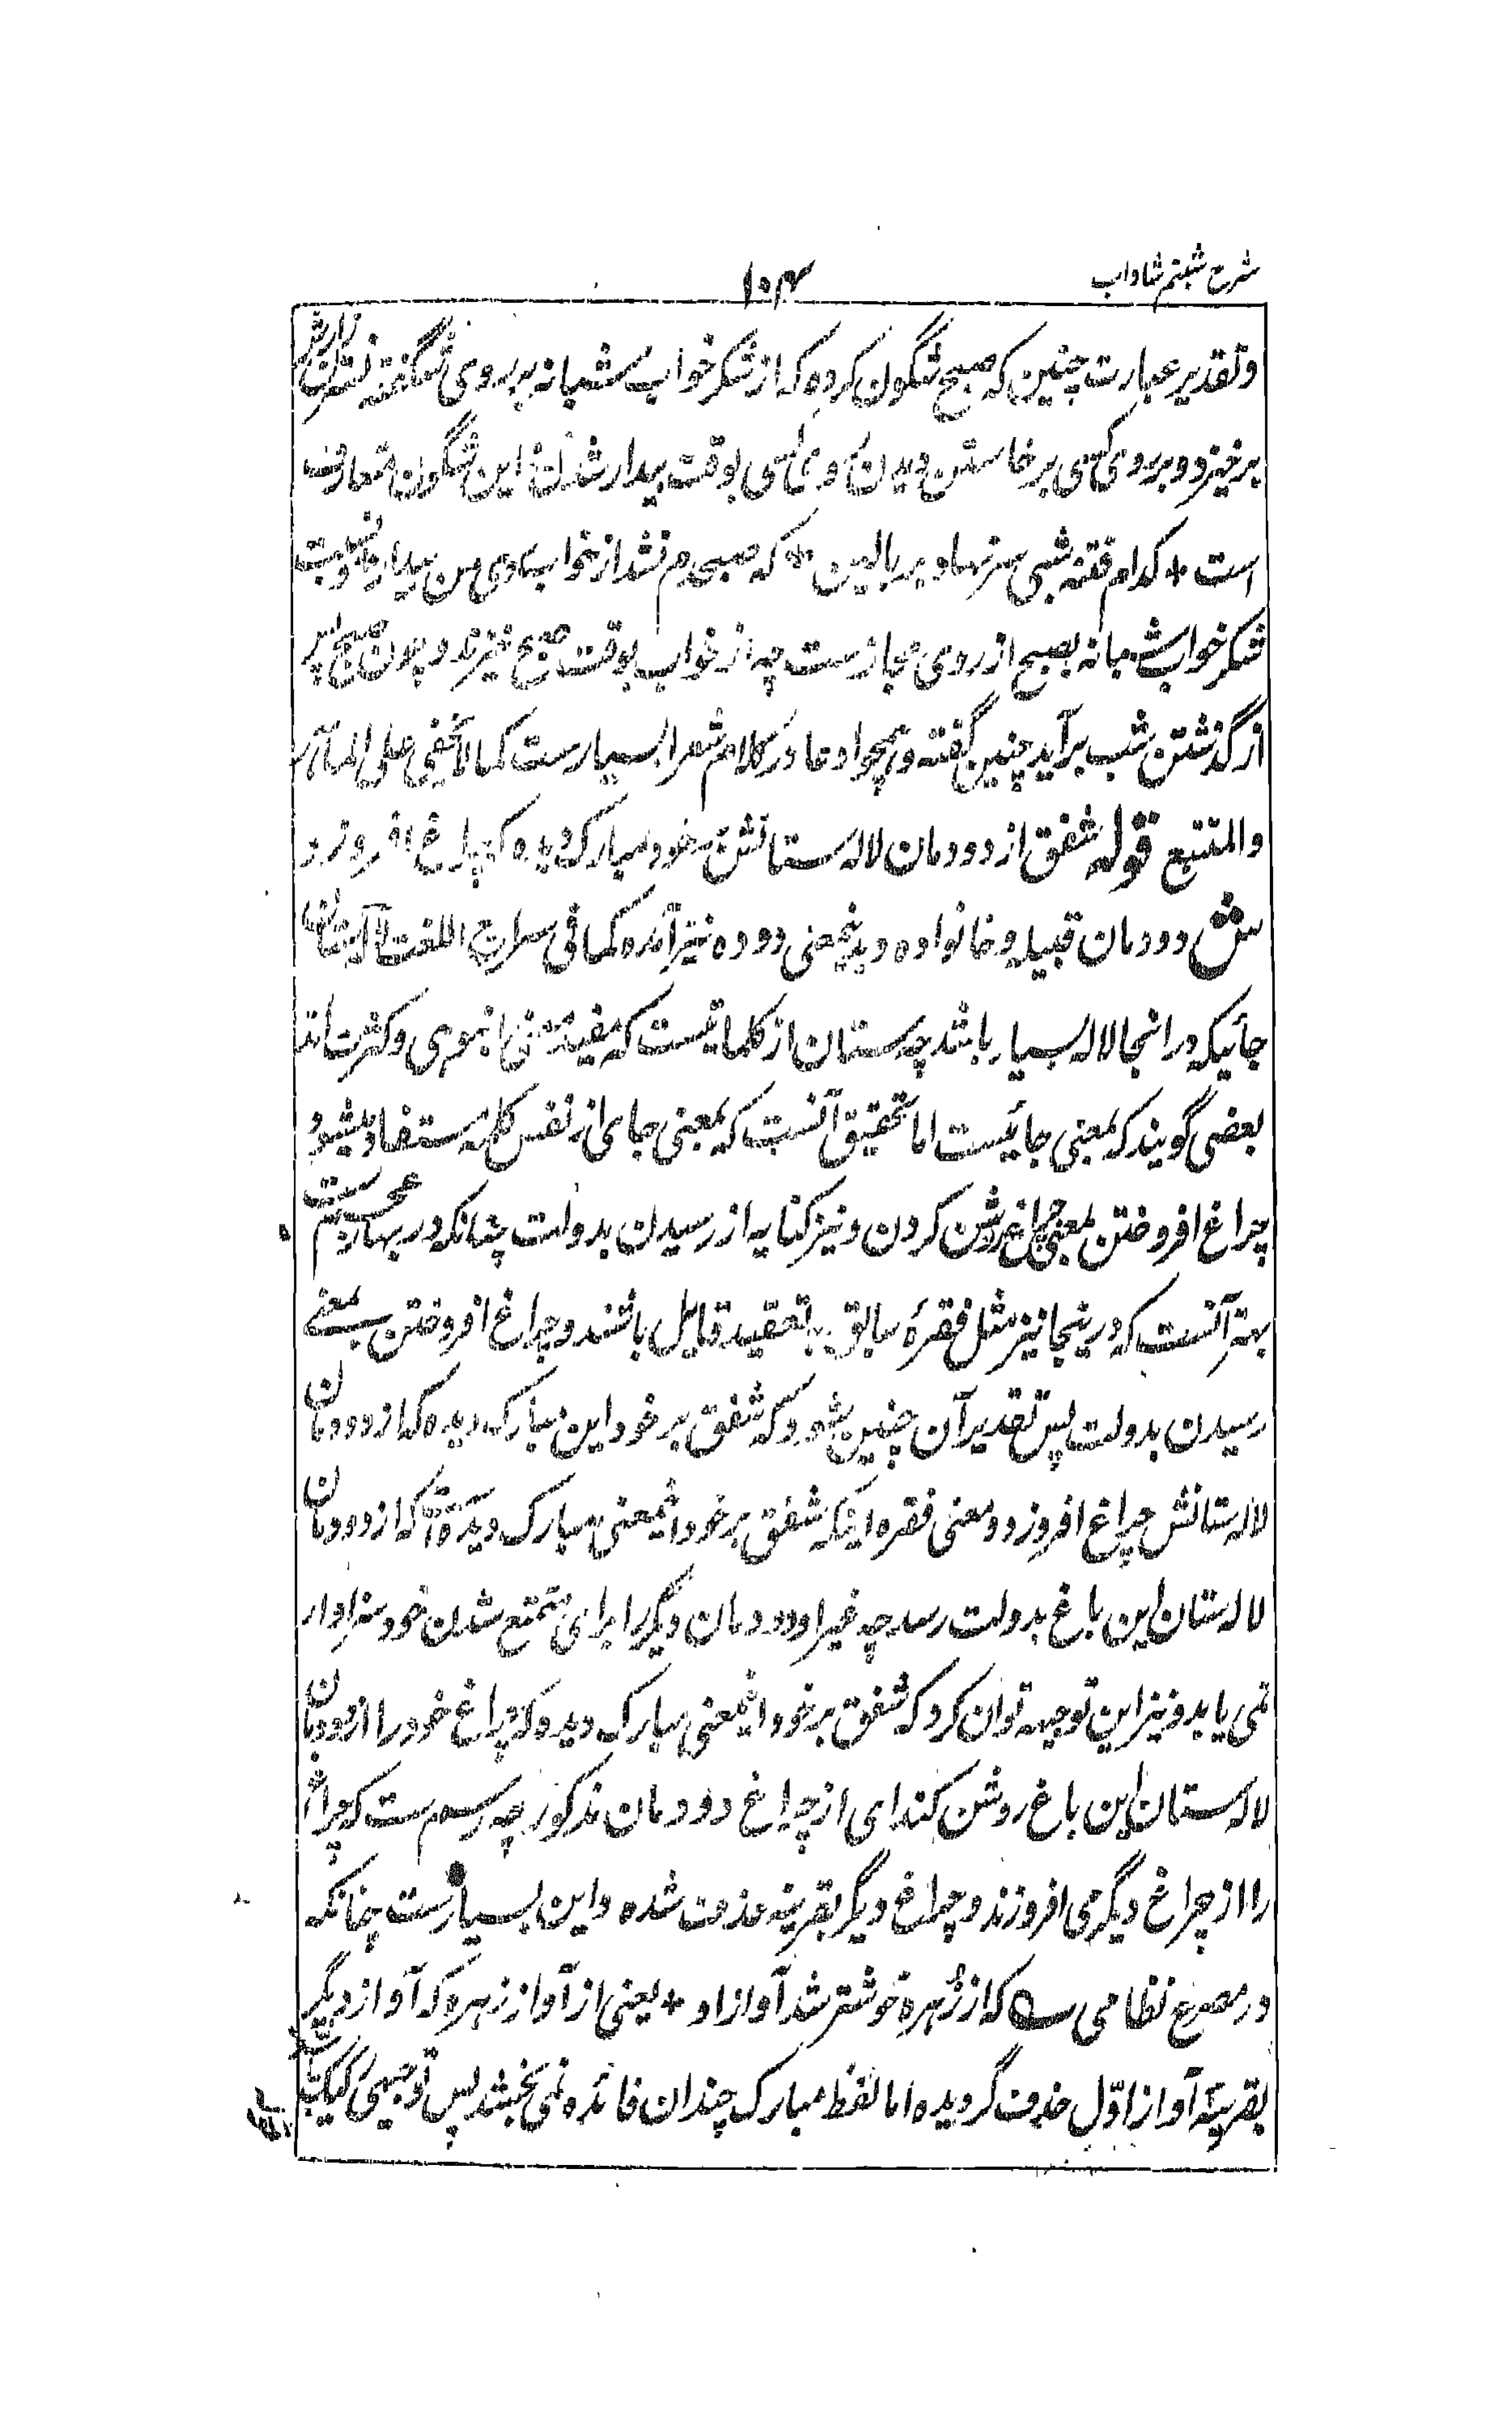 شرح شبنم شاداب
۱۰۴
وتقدیر عبارت چنین که صبح شگون کرده که از شکر خواب شبانه بر روی شگفته نسترن زارش
برخیزد و بر روی کسی برخاستن دیدن روی کسی بوقت بیدار شدن این شگون متعارف
است * کدام فتنه شبی سر نهاد بر بالین * که صبحدم نشد از خواب روی من بیدار
شکر خواب شبانه بصبح از روی مجازست چه از خواب بوقت صبح خیزند و چون صبح پس
از گذشتن شب برآید چنین گفته و همچو ادعا در کلام شعرا بسیارست کما لا یخفی علی الماهر
والمتتبع قوله شفق از دودمان لاله ستانش بر خود مبارک دیده که چراغ افروزد
ش دودمان قبیله و خانواده و بدینمعنی دوده نیز آمده کما فی سراج اللغت لاله ستان
جائیکه در انجا لاله بسیار باشد چه ستان از کلماتیست که مفید معنی انبوهی و کثرت اند
بعضی گویند که بمعنی جائیست اما تحقیق آنست که بمعنی جای از نفس کلمه مستفاد میشود
چراغ افروختن بمعنی چراغ روشن کردن و نیز کنایه از رسیدن بدولت چنانکه در بهار عجمست
بهتر آنست که درینجا نیز مثل فقرهٔ سابق بتعقید قایل باشند و چراغ افروختن بمعنی
رسیدن بدولت پس تقدیر آن چنین میشود که شفق بر خود این مبارک دیده که از دودمان
لاله ستانش چراغ افروزد و معنی فقره اینکه شفق بر خود اینمعنی مبارک دیده که از دودمان
لاله ستان این باغ بدولت رسد چه غیر او دودمان دیگر را برای متمتع شدن خود سزاوار
نمی یابد و نیز این توجیه توان کرد که شفق بر خود اینمعنی مبارک دیده که چراغ خود را از دودمان
لاله ستان این باغ روشن کند ای از چراغ دودمان مذکور چه رسم ست که چراغ
را از چراغ دیگر می افروزند و چراغ دیگر بقرینه حذف شده و این بسیارست چنانکه
در مصرع نظامی که از زهره خوشتر شد آواز او * یعنی از آواز زهره که آواز دیگر
بقرینهٔ آواز اول حذف گردیده اما لفظ مبارک چندان فائده نمی بخشد پس توجیهی